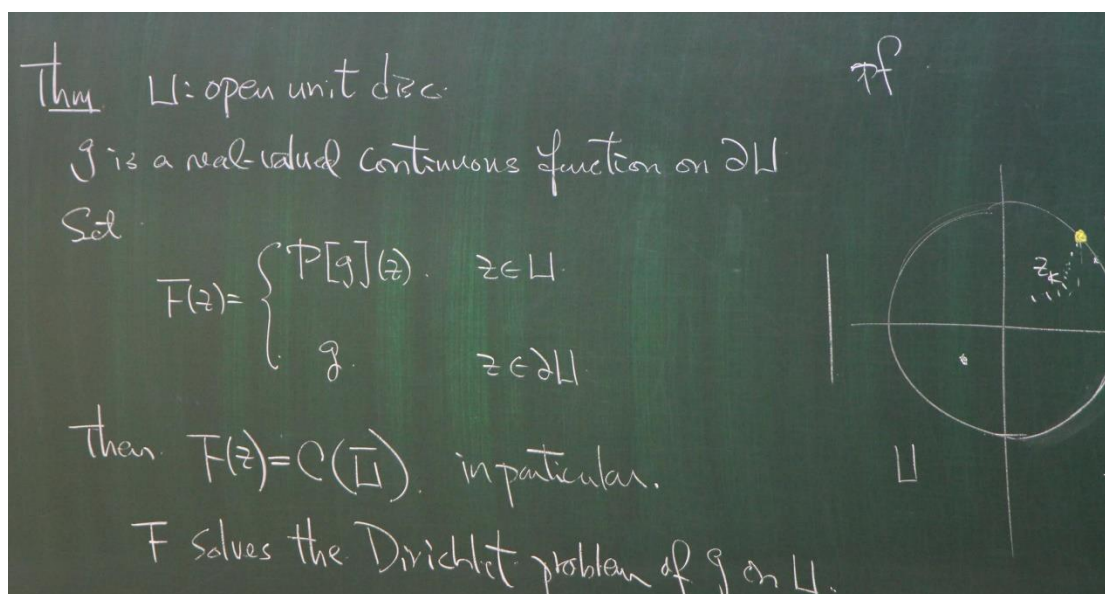 Thm U: open unit disc.
g is a real-valued continuous function on ∂U
Set
F(z)= { P[g](z). z∈U.
g. z∈∂U.
Then F(z)=C(Ū). in particular.
F solves the Dirichlet problem of g on U.
pf.
z_k
U